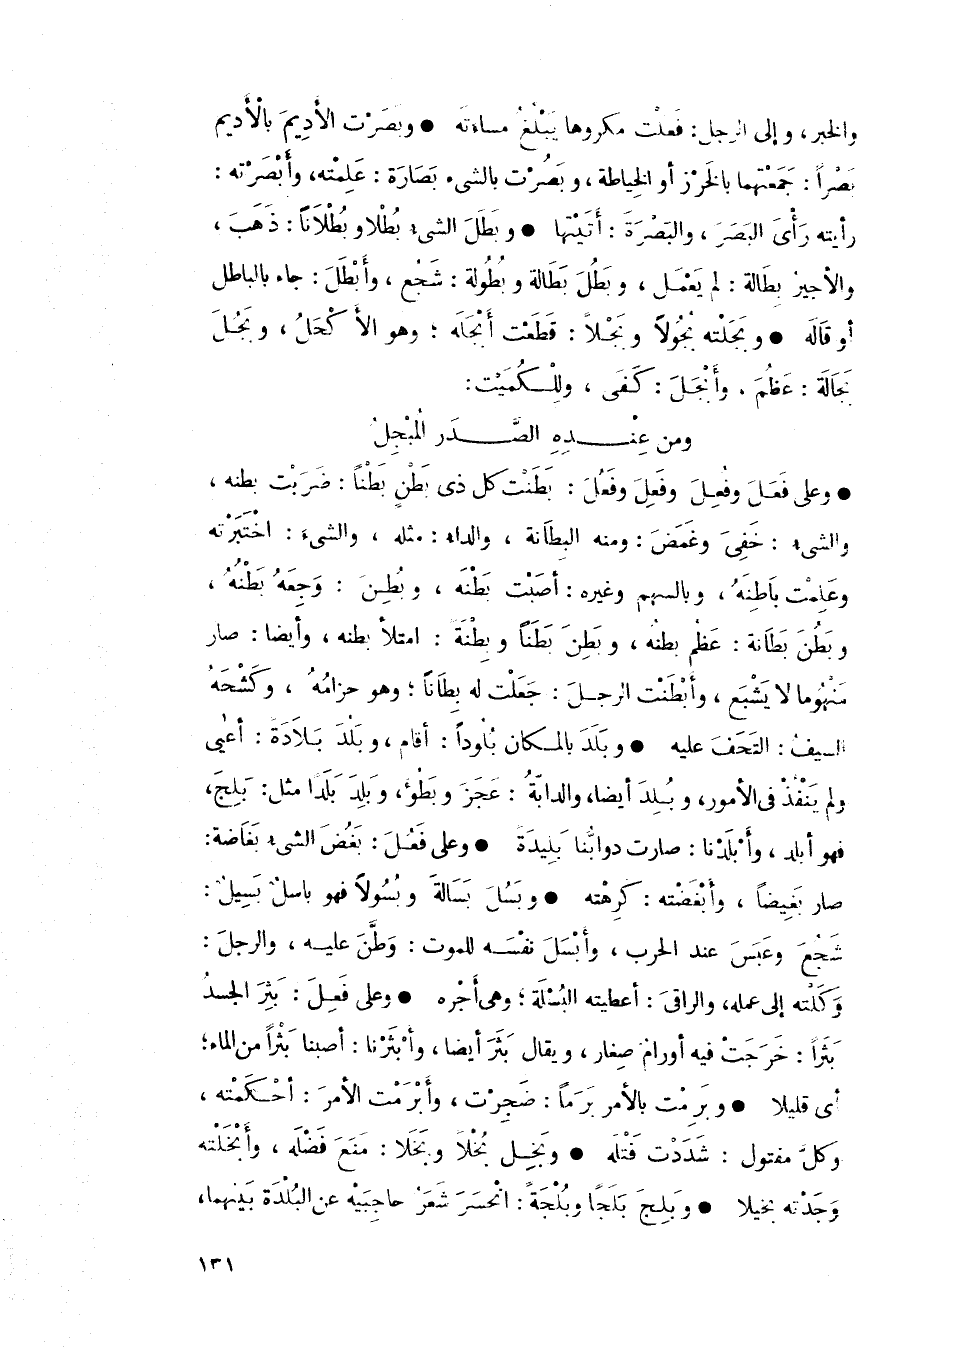 والخبر ، وإلى الرجل : فَعلْت مكروها يَبْلُغُ مساءته ● وبَصَرْت الأَدِيمَ بالْأَديم
بَصْراً : جَمَعْتهما بالخَرْز أو الخِياطة ، وبَصُرْت بالشىء بَصَارَة : عَلِمْته، وأَبْصَرْته :
رأيته رَأْىَ البَصَرَ ، والبَصْرَةَ : أَتَيْتها ● وبَطَلَ الشىء بُطْلا وبُطْلَاناً : ذَهَبَ ،
والأجيرُ بِطَالة : لم يَعْمَل ، وبَطُلَ بَطَالة وبُطُولة : شَجُع ، وأَبْطَلَ : جاء بالباطل
أو قَالَه ● وبَجَلْته بُجُولاً وبَجْلاً : قَطَعْت أَبْجَلَه ؛ وهو الأَكْحَلُ ، وبَجُلَ
بَجَالَة : عَظُمَ . وأَبْجَلَ : كَفَى ، وللْكُمَيْت :
ومن عِنْدِهِ الصَّدَر المُبْجِلُ
● وعلى فَعَلَ وفُعِلَ وفَعِلَ وفَعُلَ : بَطَنْت كل ذى بَطْنٍ بَطْناً : ضَرَبْت بطنه ،
والشىء : خَفِىَ وغَمَضَ : ومنه البِطَانة ، والداء : مثله ، والشىءَ : اخْتَبَرْته
وعَلِمْت بَاطِنَهُ ، وبالسهم وغيره : أصَبْت بَطْنَه ، وبُطِنَ : وَجِعَهُ بَطْنُهُ ،
وبَطُنَ بَطَانة : عَظُم بطنُه ، وبَطِنَ بَطَناً وبِطْنَةً : امتلأ بطنه ، وأيضا : صار
مَنْهُوما لا يَشْبَع ، وأَبْطَنْت الرجل : جَعَلْت له بِطَاناً ؛ وهو حزامُهُ ، وكَشْحَهُ
السيفُ : التَحَفَ عليه ● وبَلَدَ بالمكان بُلُوداً : أقام ، وبَلُدَ بَلَادَةً : أَعْيَى
ولم يَنْفُذْ فى الأمور، وبُلِدَ أيضا، والدابّةُ : عَجَزَ وبَطُؤَ، وبَلِدَ بَلَدًا مثل: بَلِجَ،
فهو أبلد ، وأَبْلَدْنا : صارت دوابُّنا بَلِيدَةً ● وعلى فَعُلَ : بَغُضَ الشىء بَغَاضة:
صار بَغِيضاً ، وأَبْغَضْته : كَرِهْته ● وبَسُلَ بَسَالةً وبُسُولاً فهو باسلٌ بَسِيلٌ :
شَجُعَ وعَبَسَ عند الحرب ، وأَبْسَلَ نفْسَه للموت : وَطَّنَ عليه ، والرجلَ :
وَكَلْته إلى عمله، والراقىَ : أعطيته البُسْلَة ؛ وهى أَجْره ● وعلى فَعِلَ : بَثِرَ الجسدُ
بَثَراً : خَرَجَتْ فيه أورامٌ صِغار ، ويقال بَثَرَ أيضا ، وأَبْثَرْنا : أصبنا بَثْراً من الماء؛
أى قليلا ● وبَرِمْت بالأمر بَرَماً : ضَجِرْت ، وأَبْرَمْت الأمرَ : أحْكَمْته ،
وكلَّ مفتول : شَدَدْت فَتْلَه ● وبَخِل بُخْلاً وبَخَلا : مَنَعَ فَضْلَه ، وأَبْخَلْته
وَجَدْته بخيلا ● وبَلِجَ بَلَجًا وبُلْجَةً : انْحسَرَ شَعَرُ حاجِبَيْه عن البُلْدَة بَيْنهما،
١٣١